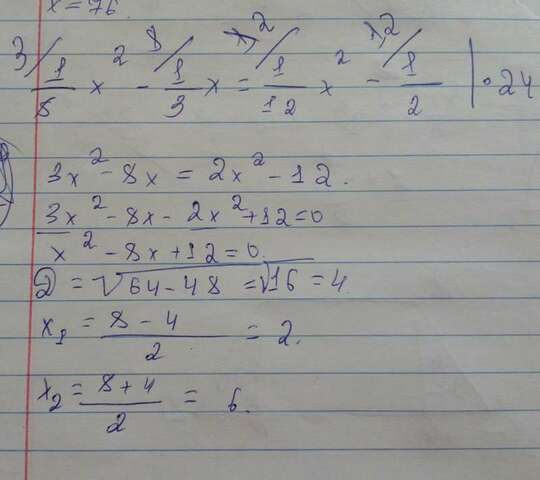 x = 76.
3/ 1/8 x² - 8/ 1/3 x = 2/ 1/12 x² - 12/ 1/2 | · 24
3x² - 8x = 2x² - 12.
3x² - 8x - 2x² + 12 = 0
x² - 8x + 12 = 0.
D = √64 - 48 = √16 = 4.
x₁ = (8 - 4)/2 = 2.
x₂ = (8 + 4)/2 = 6.